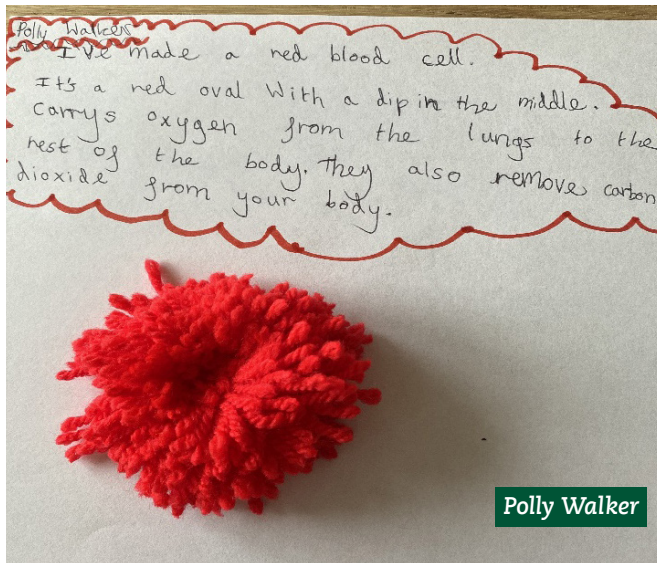 Polly Walkers
I've made a red blood cell.
It's a red oval With a dip in the middle.
Carrys oxygen from the lungs to the
rest of the body. They also remove carbon
dioxide from your body.
Polly Walker